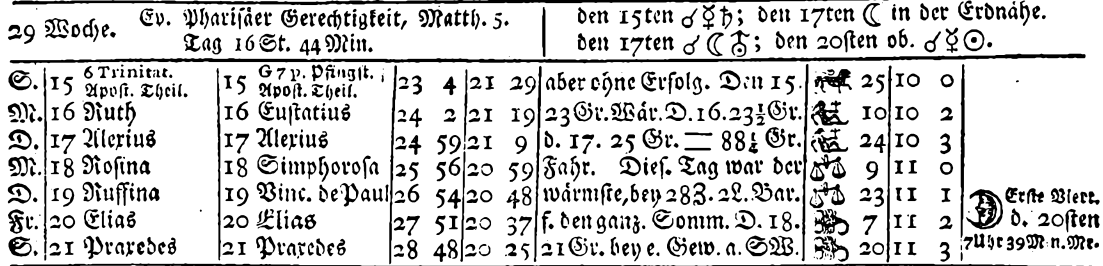 29 Woche. Ev. Pharisäer Gerechtigkeit, Matth. 5. Tag 16 St. 44 Min.
den 15ten ☌☿♄; den 17ten ☾ in der Erdnähe.
den 17ten ☌☾⛢; den 20sten ob. ☌☿☉.
S. 15 6 Trinitat. Apost. Theil. 15 G 7 p. Pfingst. Apost. Theil. 23 4 21 29 aber ohne Erfolg. Den 15. 25 10 0
M. 16 Ruth 16 Eustatius 24 2 21 19 23 Gr. Wär. D. 16. 23½ Gr. 10 10 2
D. 17 Alexius 17 Alexius 24 59 21 9 d. 17. 25 Gr. = 88¼ Gr. 24 10 3
M. 18 Rosina 18 Simphorosa 25 56 20 59 Fahr. Dies. Tag war der ♎ 9 11 0
D. 19 Ruffina 19 Vinc. de Paul 26 54 20 48 wärmste, bey 28 Z. 2 L. Bar. ♎ 23 11 1
Fr. 20 Elias 20 Elias 27 51 20 37 f. den ganz. Somm. D. 18. 7 11 2
S. 21 Praxedes 21 Praxedes 28 48 20 25 21 Gr. bey e. Gew. a. SW. 20 11 3
Erste Viert.
d. 20sten
7 Uhr 39 Min. Mr.